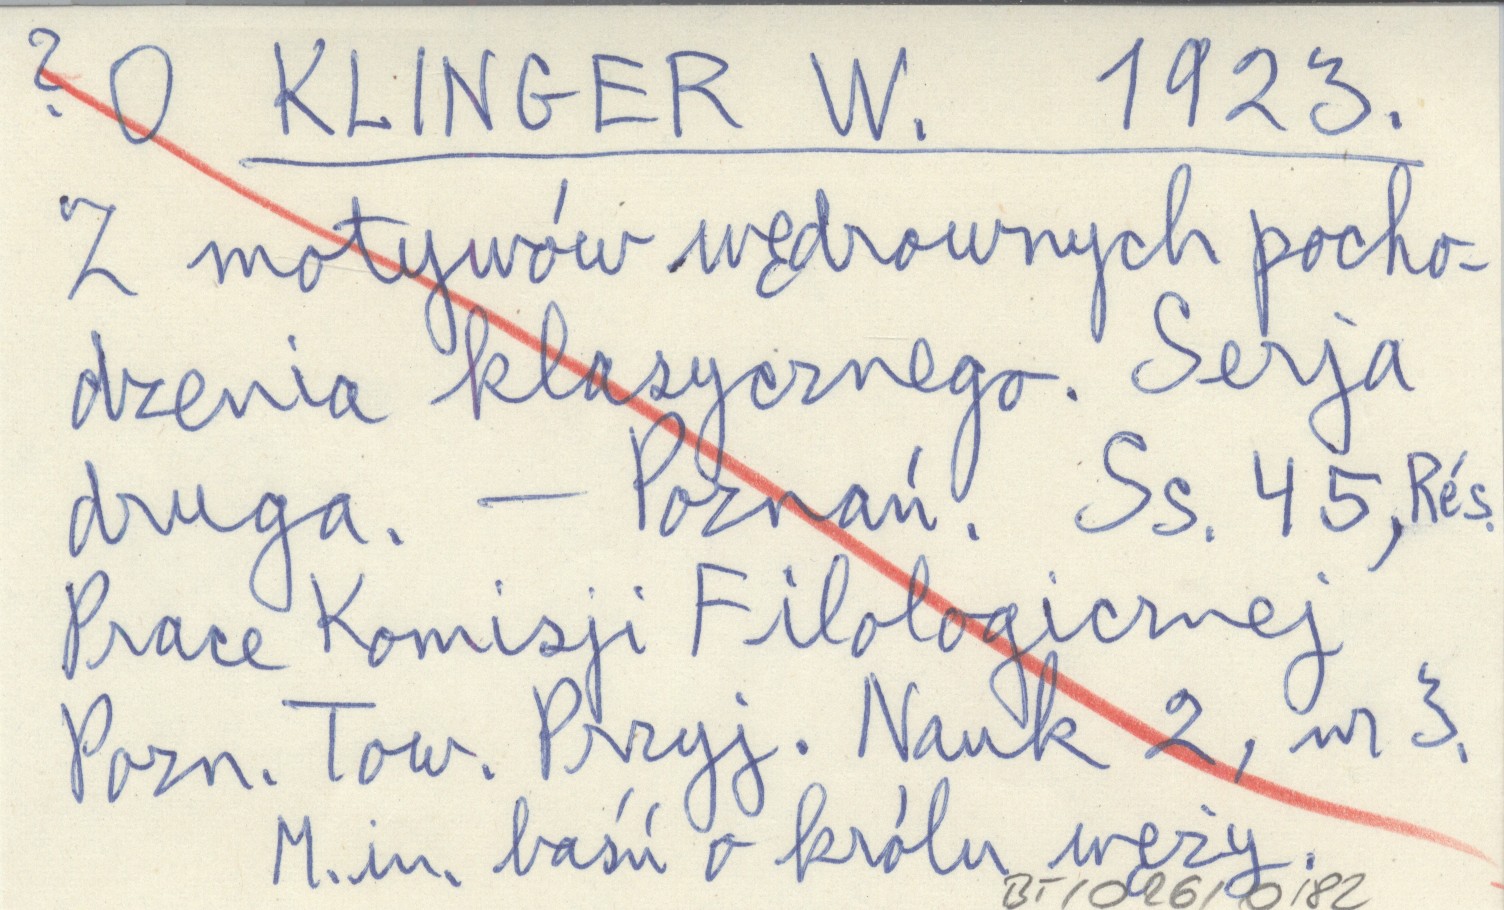 ? O KLINGER W. 1923.
Z motywów wędrownych pocho-
dzenia klasycznego. Serja
druga. — Poznań. Ss. 45, Rés.
Prace Komisji Filologicznej
Pozn. Tow. Przyj. Nauk 2, nr 3.
M.in. baśń o królu węży.
BT/026/0182